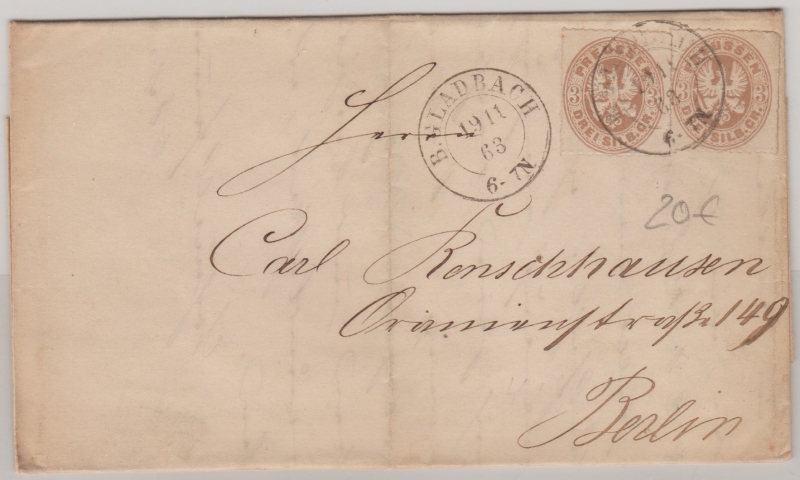 B. GLADBACH
19 11
63
6-7N
PREUSSEN
DREI SILB.GR.
3
3
PREUSSEN
SILB.GR.
3
6-7N
Herrn
20€
Carl Renschhausen
Oranienstraße 149
Berlin